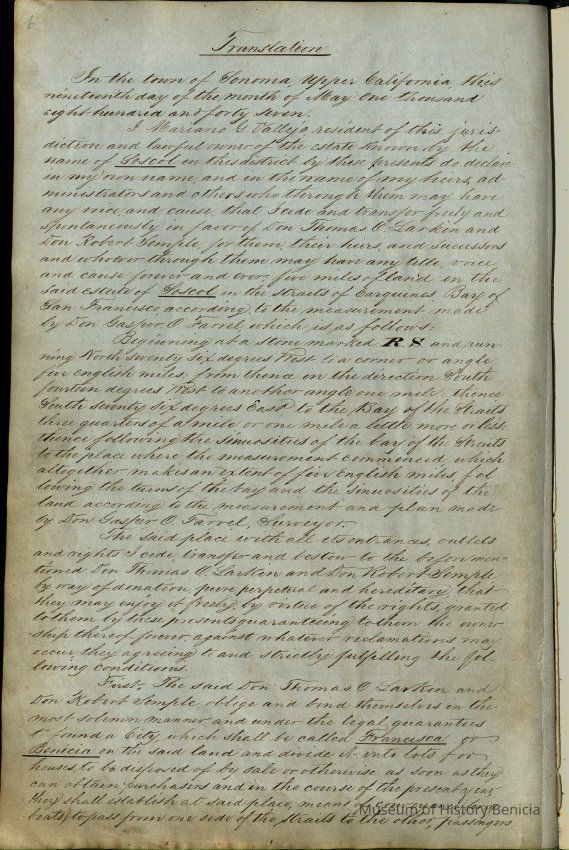 6
Translation
In the town of Sonoma, Upper California, this
nineteenth day of the month of May One thousand
eight hundred and forty seven.
I Mariano G Vallejo, resident of this juris-
diction and lawful owner of the estate known by the
name of Soscol in this district by these presents do declare
in my own name, and in the name of my heirs, ad
ministrators and others who through them may have
any voice and cause, that I cede and transfer freely and
spontaneously in favor of Don Thomas O. Larkin and
Don Robert Semple, for them, their heirs, and successors
and whoever through them may have any title, voice
and cause forever and ever five miles of land in the
said estate of Soscol in the straits of Carquines Bay of
San Francisco according to the measurement made
by Don Gasper O. Farrel, which is as follows:
Beginning at a stone marked R. S. and run-
ning North seventy six degrees West to a corner or angle
five English miles; from thence in the direction South
fourteen degrees West to another angle one mile; thence
South seventy six degrees East to the Bay of the Straits
three quarters of a mile or one mile a little more or less
thence following the sinuosities of the bay of the Straits
to the place where the measurement commenced, which
altogether makes an extent of five English miles fol
lowing the turns of the bay and the sinuosities of the
land according to the measurement and plan made
by Don Gasper O. Farrel, Surveyor.
The said place with all its entrances, outlets
and rights I cede, transfer and bestow to the before men-
tioned Don Thomas O. Larkin and Don Robert Semple
by way of donation pure, perpetual and hereditary that
they may enjoy it freely by virtue of the rights, granted
to them by these presents guaranteeing to them the owner
ship thereof forever, against whatever reclamations may
occur, they agreeing to and strictly fulfilling the fol-
lowing conditions.
First, The said Don Thomas O. Larkin and
Don Robert Semple oblige and bind themselves in the
most solemn manner and under the legal guarantees
to found a City, which shall be called Francisca or
Benicia on the said land and divide it into lots for
houses, to be disposed of by sale or otherwise as soon as they
can obtain purchasers and in the course of the present year
they shall establish at said place, means
boats) to pass from one side of the straits to the other, passengers
Museum of History Benicia